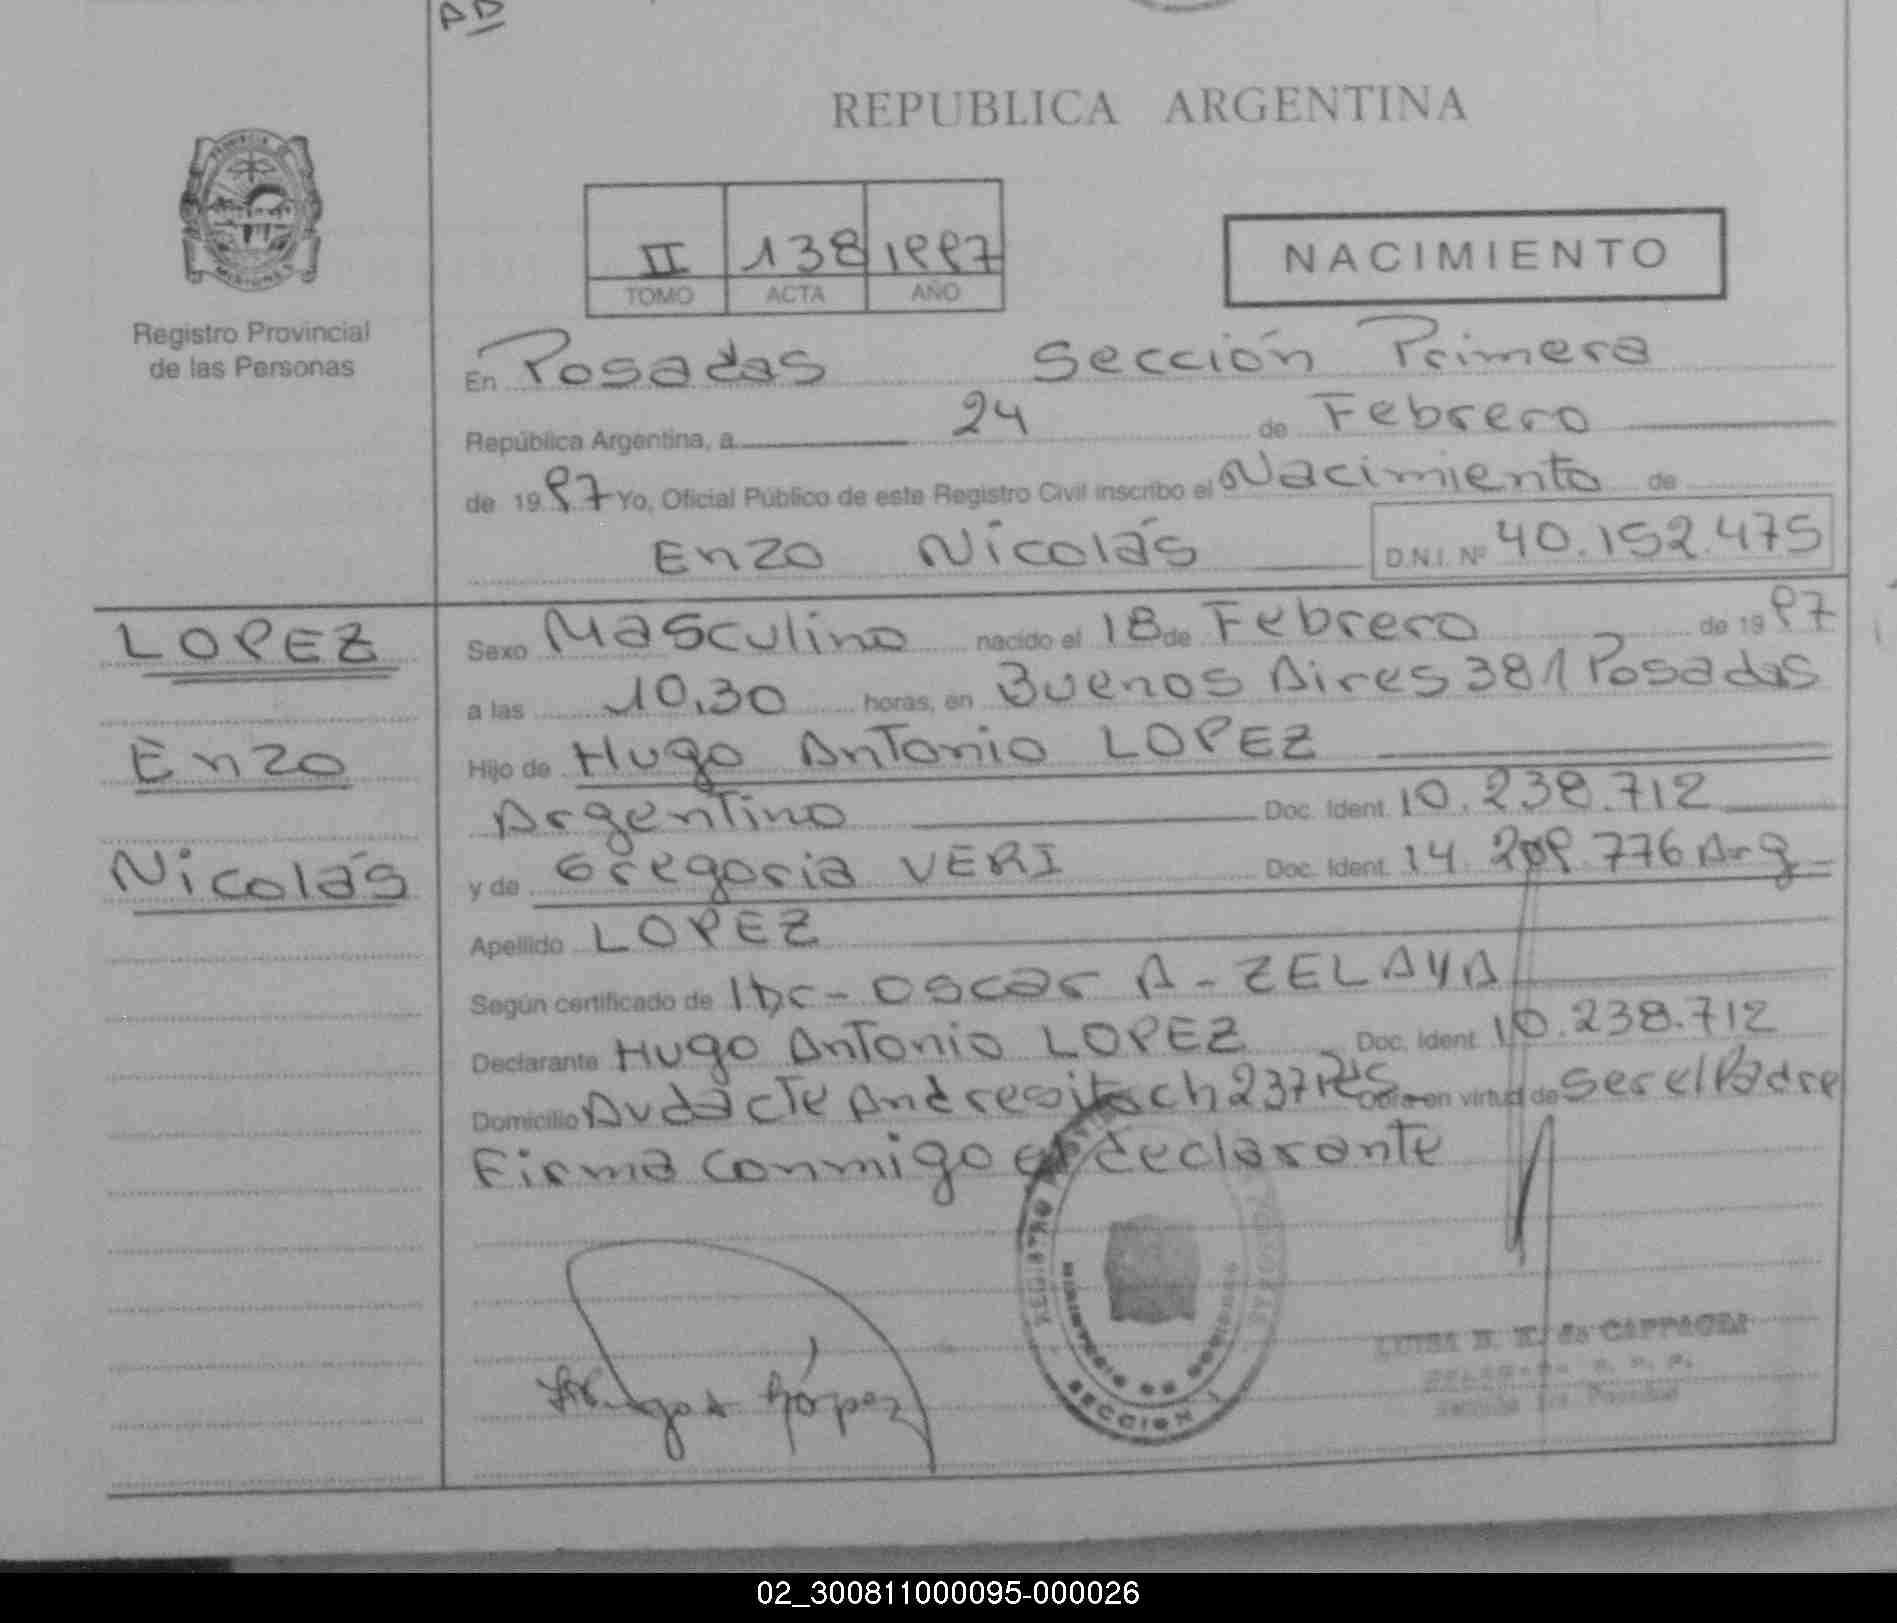 AD
REPUBLICA ARGENTINA
PROVINCIA DE MISIONES
Registro Provincial
de las Personas
II 138 1997
TOMO ACTA AÑO
NACIMIENTO
En Posadas Sección Primera
República Argentina, a 24 de Febrero
de 1997 Yo, Oficial Público de este Registro Civil inscribo el Nacimiento de
Enzo Nicolás D.N.I. Nº 40.152.475
LOPEZ
Enzo
Nicolás
Sexo Masculino nacido el 18 de Febrero de 1997
a las 10,30 horas, en Buenos Aires 381 Posadas
Hijo de Hugo Antonio LOPEZ
Argentino Doc. Ident. 10.238.712
y de Gregoria VERI Doc. Ident. 14.209.776 Arg
Apellido LOPEZ
Según certificado de Oscar A - ZELAYA
Declarante Hugo Antonio LOPEZ Doc. Ident. 10.238.712
Domicilio Avda cte Andresito ch 237 Pdas Obra en virtud de ser el Padre
Firma conmigo el declarante
REGISTRO
MINISTERIO DE GOBIERNO
SECCION 1
Hugo A López
LUISA
02_300811000095-000026